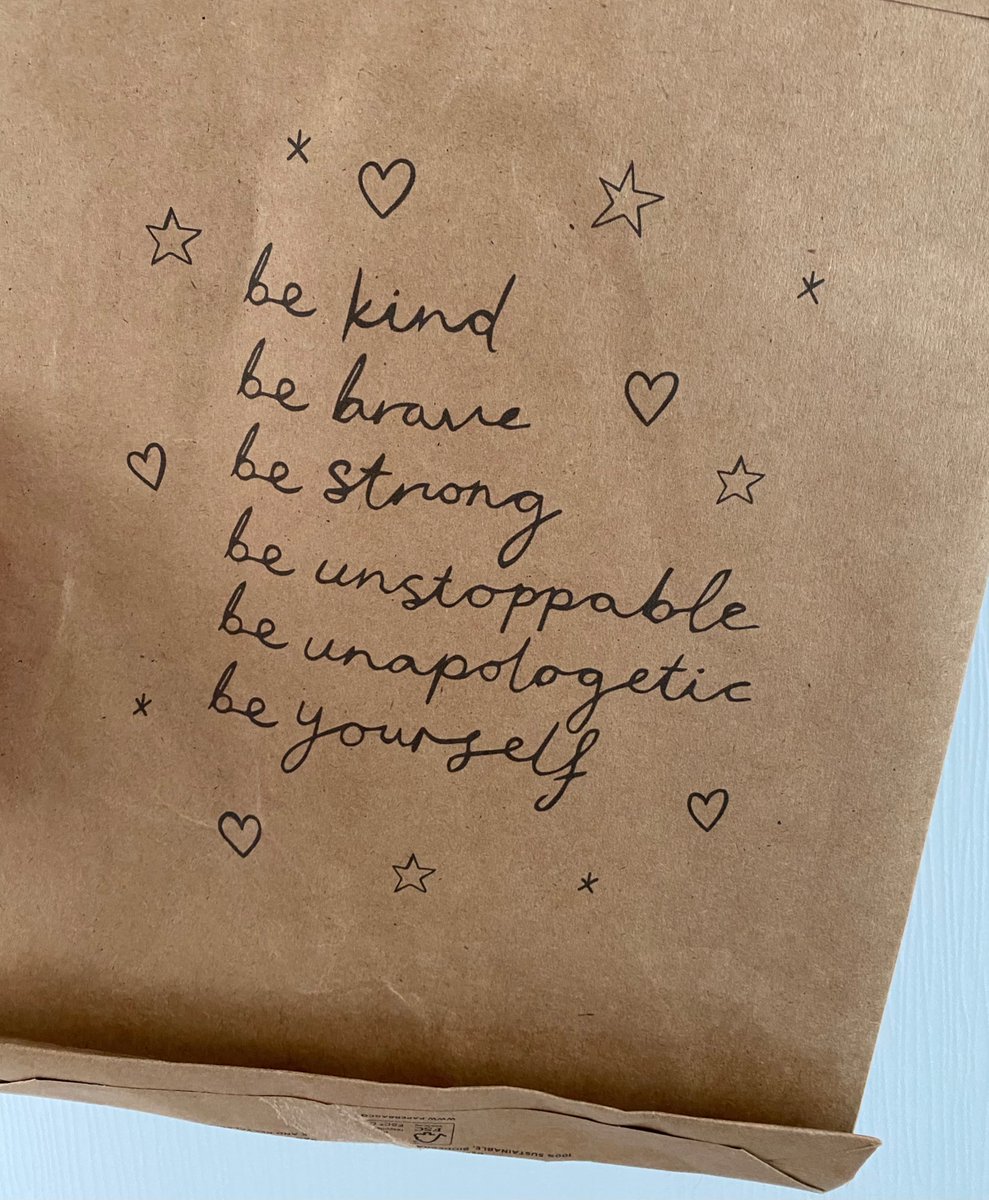 be kind
be brave
be strong
be unstoppable
be unapologetic
be yourself
WWW.PAPERBAGCO
FSC
100% SUSTAINABLE,